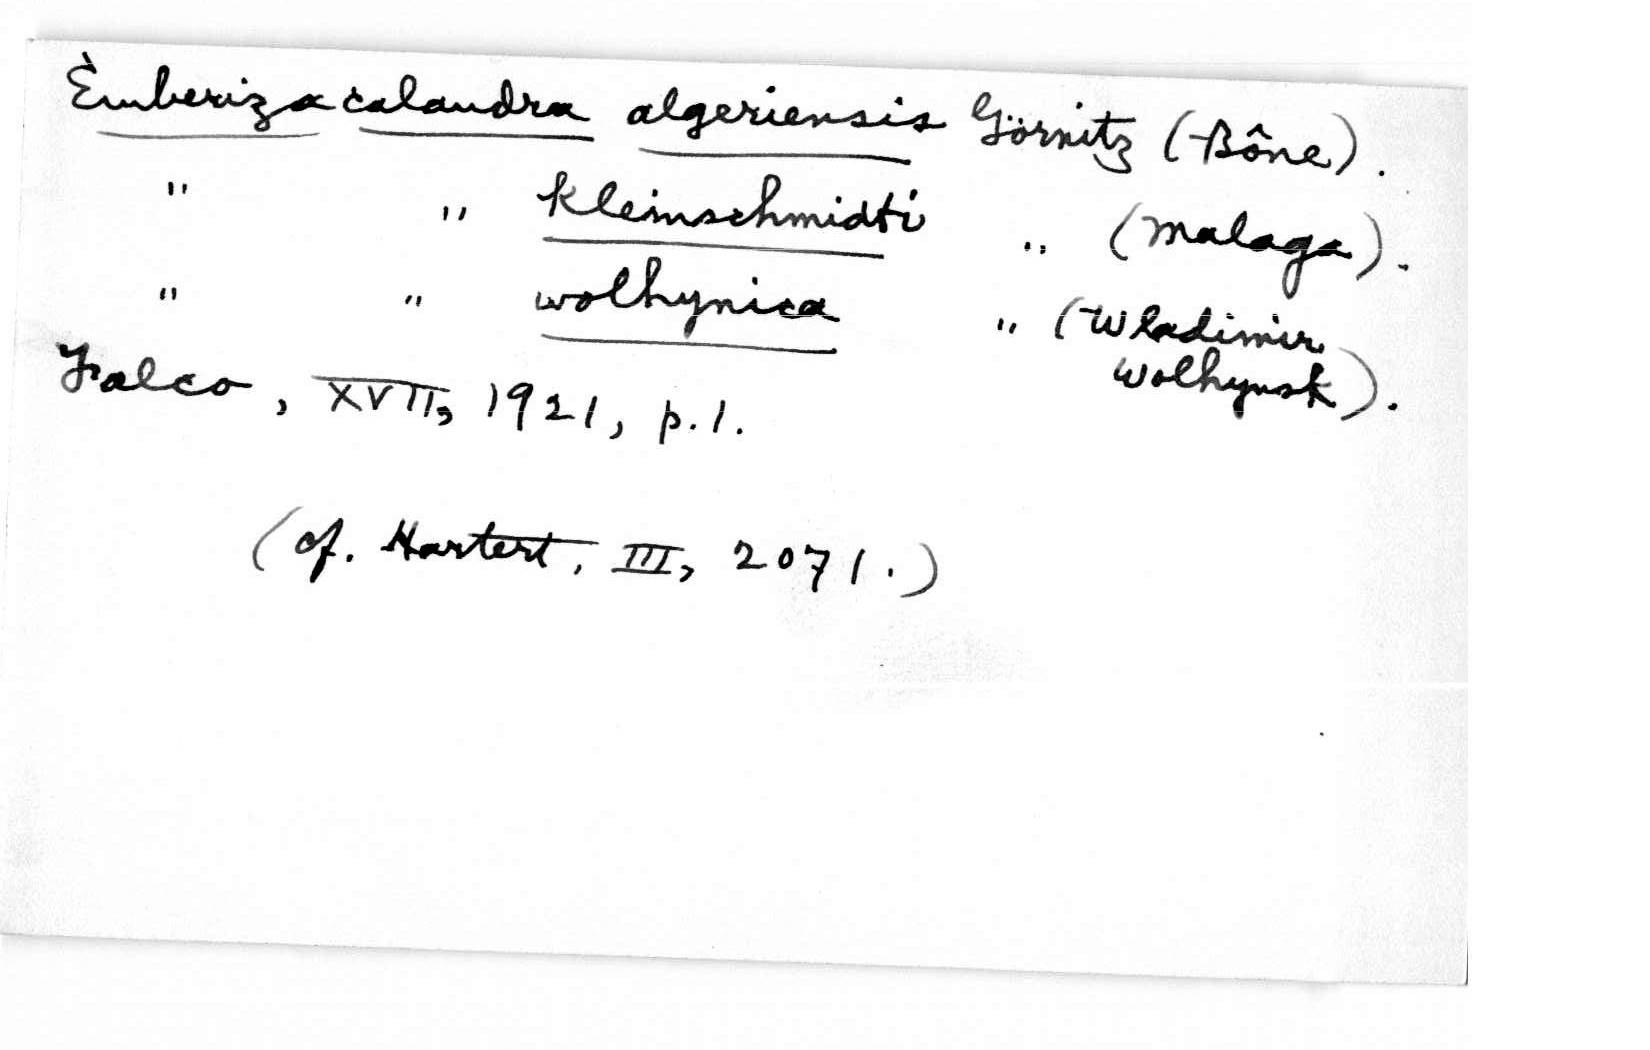 Emberiza calandra algeriensis Görnitz (Bône).
" " kleinschmidti " (Malaga).
" " wolhynica " (Wladimir
Wolhynsk).
Falco, XVII, 1921, p.1.
(cf. Hartert, III, 2071.)